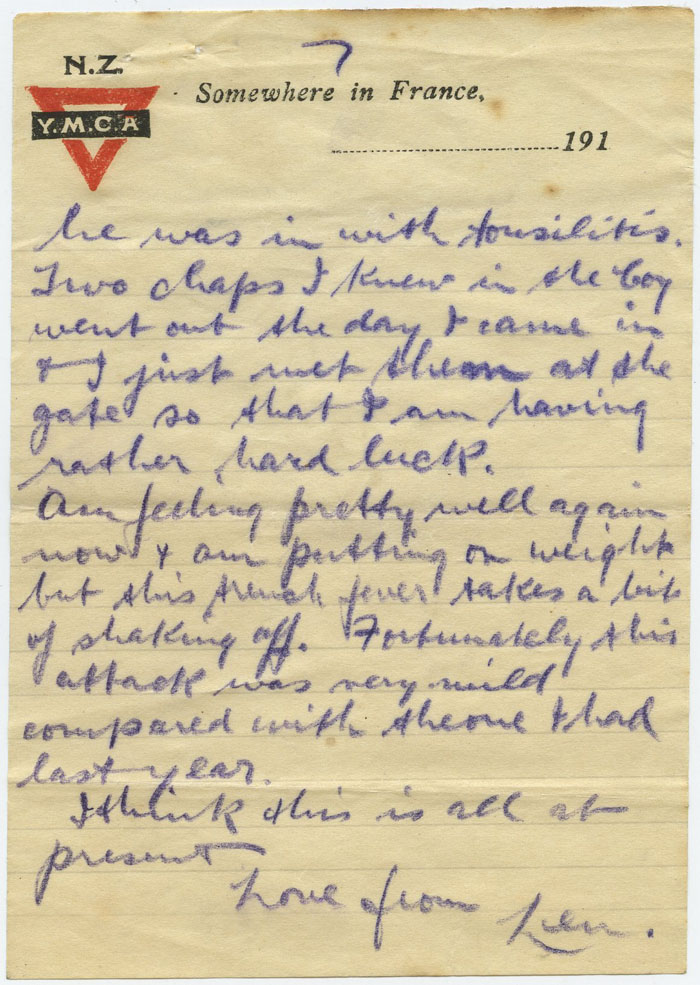 7
N.Z.
Y.M.C.A
Somewhere in France,
191
he was in with tonsilitis.
Two chaps I knew in the Coy
went out the day I came in
& I just met them at the
gate so that I am having
rather hard luck.
Am feeling pretty well again
now & am putting on weight
but this trench fever takes a bit
of shaking off. Fortunately this
attack was very mild
compared with the one I had
last year.
I think this is all at
present
Love from Len.